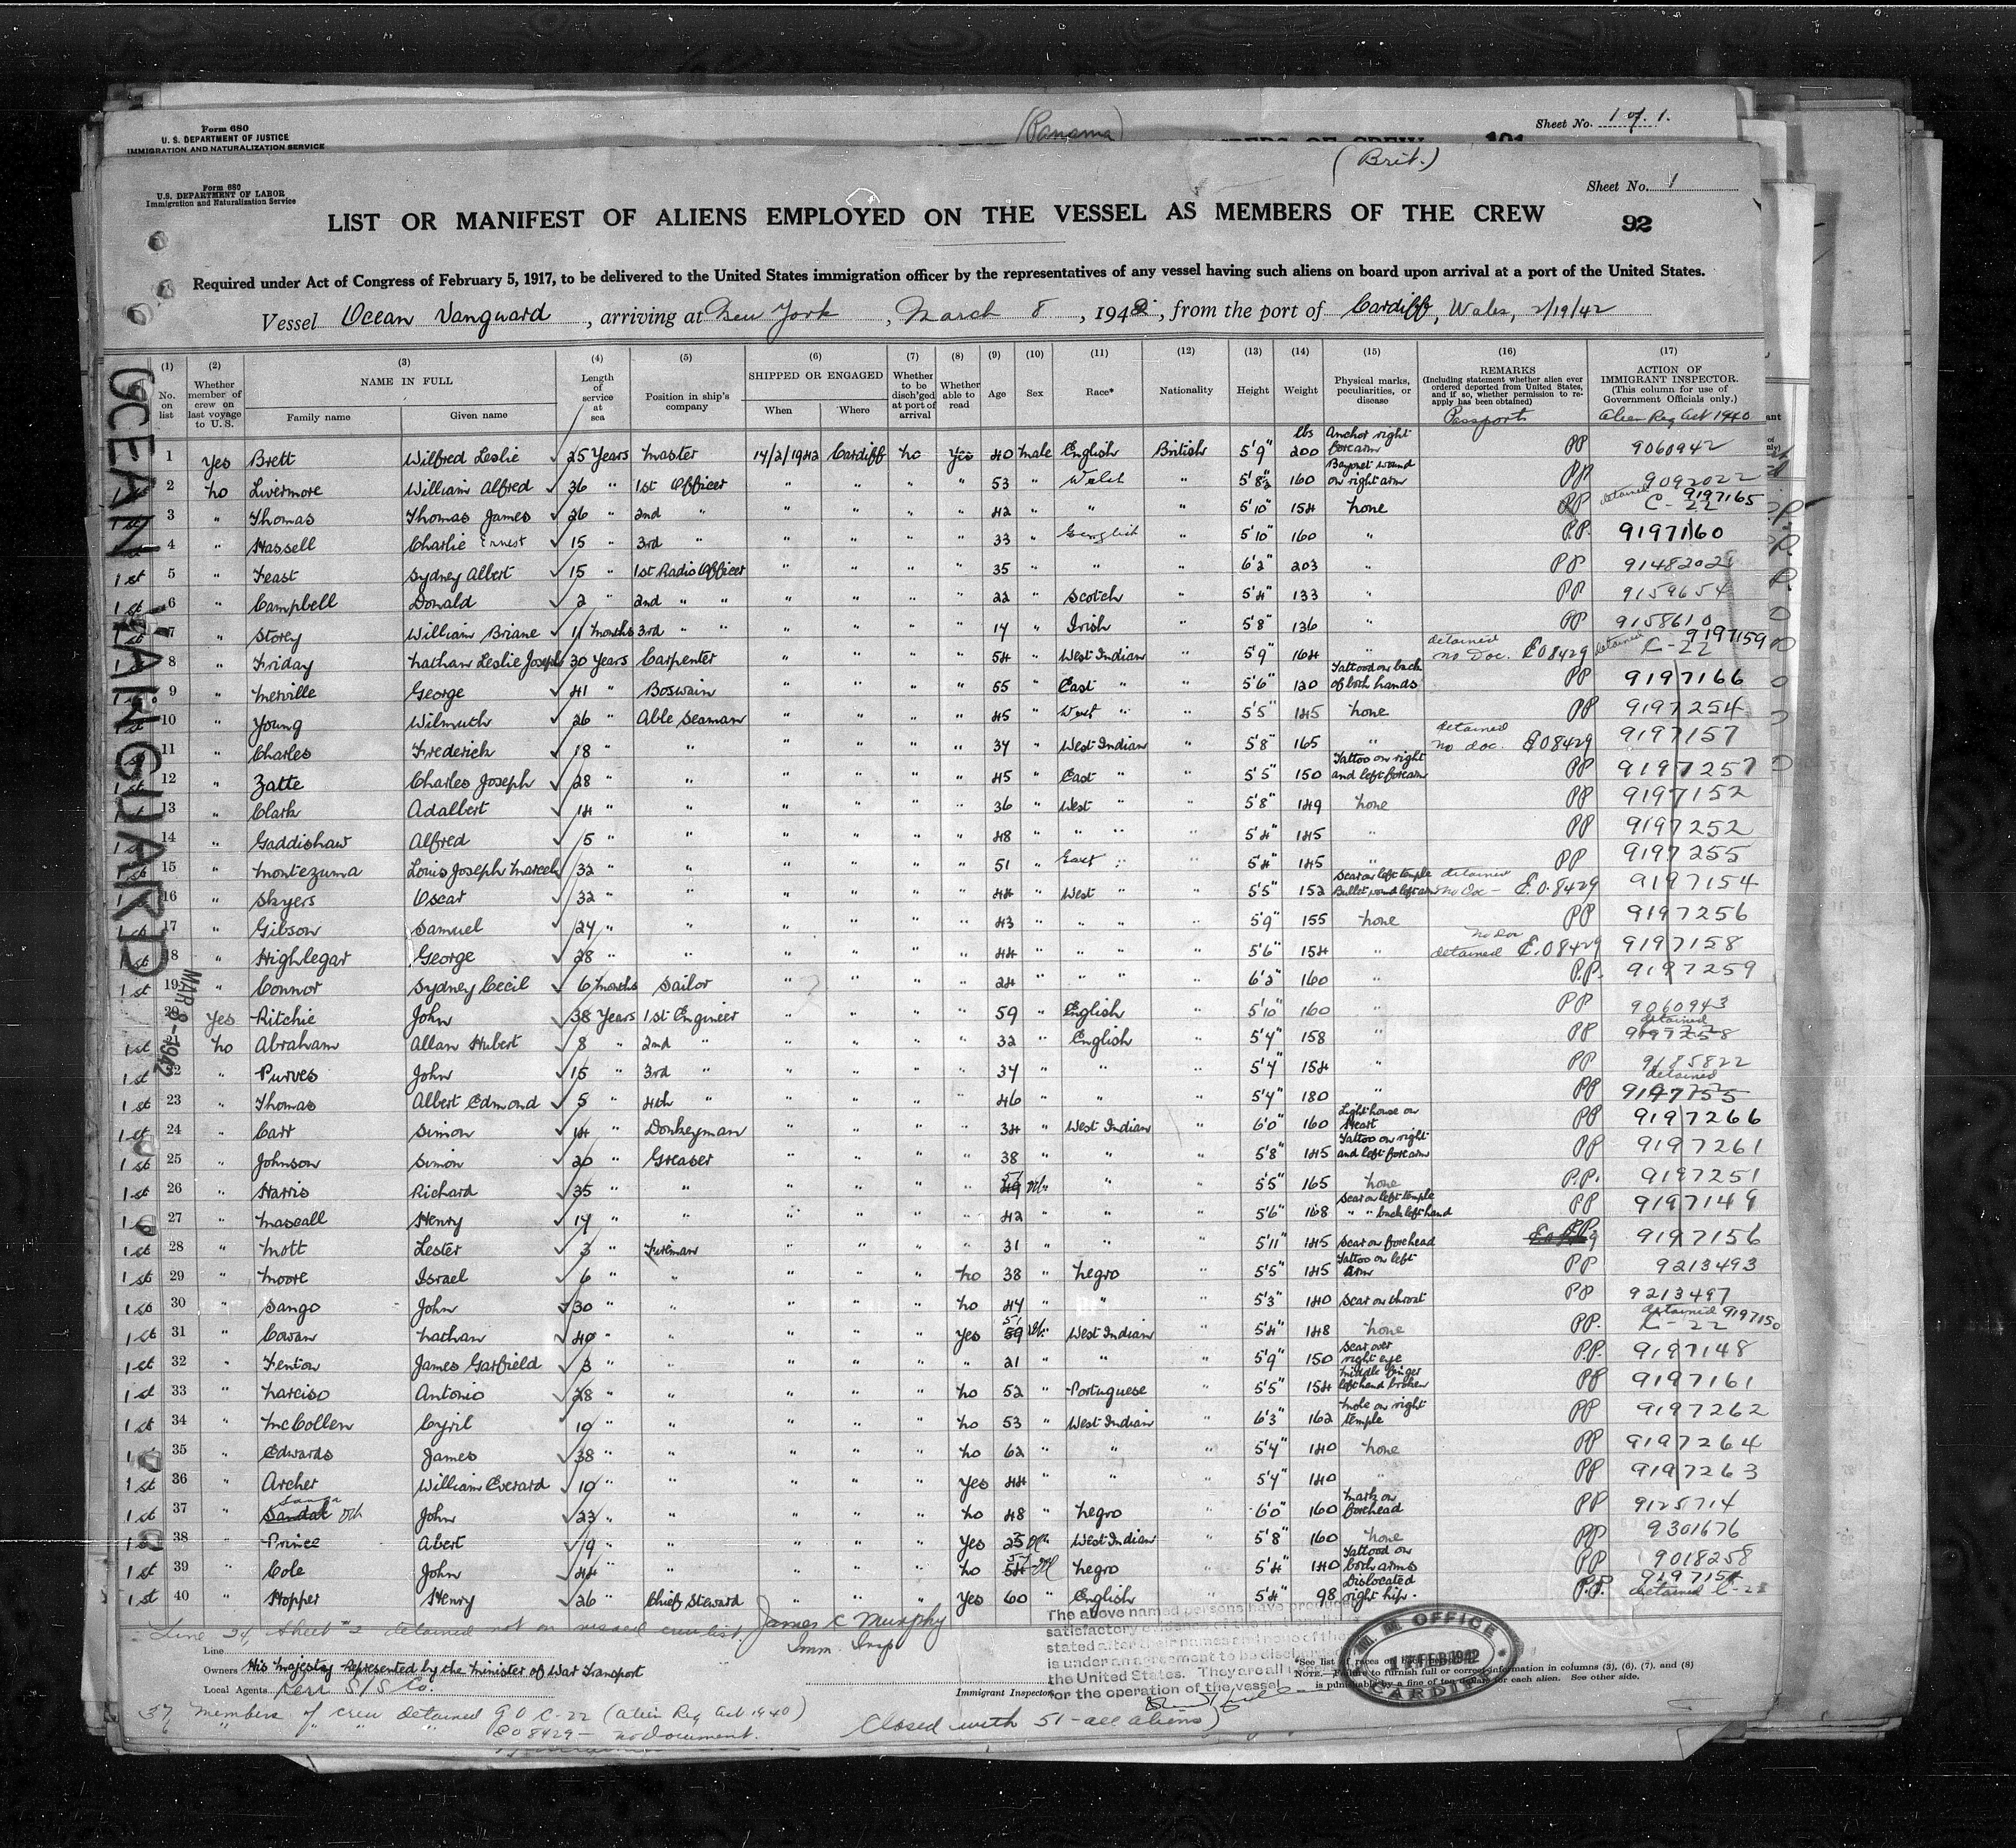 Form 680
U. S. DEPARTMENT OF JUSTICE
IMMIGRATION AND NATURALIZATION SERVICE
(Panama)
Sheet No. 1 of 1.
Form 680
U.S. DEPARTMENT OF LABOR
Immigration and Naturalization Service
(Brit.)
Sheet No. 1
LIST OR MANIFEST OF ALIENS EMPLOYED ON THE VESSEL AS MEMBERS OF THE CREW
92
Required under Act of Congress of February 5, 1917, to be delivered to the United States immigration officer by the representatives of any vessel having such aliens on board upon arrival at a port of the United States.
Vessel Ocean Vanguard, arriving at New York, March 8, 1942, from the port of Cardiff, Wales, 2/19/42
(1) No. on list
(2) Whether member of crew on last voyage to U. S.
(3) NAME IN FULL Family name Given name
(4) Length of service at sea
(5) Position in ship's company
(6) SHIPPED OR ENGAGED When Where
(7) Whether to be disch'ged at port of arrival
(8) Whether able to read
(9) Age
(10) Sex
(11) Race*
(12) Nationality
(13) Height
(14) Weight
(15) Physical marks, peculiarities, or disease
(16) REMARKS (Including statement whether alien ever ordered deported from United States, and if so, whether permission to re-apply has been obtained) Passport
(17) ACTION OF IMMIGRANT INSPECTOR. (This column for use of Government Officials only.) Alien Reg Act 1940
OCEAN VANGUARD
MAR 8 - 1942
1 Yes Brett Wilfred Leslie 25 Years Master 14/2/1942 Cardiff No Yes 40 Male English British 5'9" lbs 200 Anchor right forearm PP 9060942
1st 2 No Livermore William Alfred 36 " 1st Officer " " " " 53 " Welsh " 5'8½ 160 Bayonet wound on right arm PP 9092022
1st 3 " Thomas Thomas James 26 " 2nd " " " " " 42 " " " 5'10" 154 None PP detained C-22 9197165
4 " Hassell Charlie Ernest 15 " 3rd " " " " " 33 " English " 5'10" 160 " P.P. 9197160
1st 5 " Feast Sydney Albert 15 " 1st Radio Officer " " " " 35 " " " 6'2" 203 " PP 9148202
1st 6 " Campbell Donald 2 " 2nd " " " " " " 22 " Scotch " 5'4" 133 " PP 9159654
1st 7 " Storey William Briane 11 months 3rd " " " " " " 17 " Irish " 5'8" 136 " PP 9158610
1st 8 " Friday Nathan Leslie Joseph 30 Years Carpenter " " " " 54 " West Indian " 5'9" 164 " detained no Doc. E08429 detained C-22 9197159
9 " Merville George 41 " Boswain " " " " 55 " East " " 5'6" 120 Tattood on back of both hands PP 9197166
1st 10 " Young Wilmuth 26 " Able Seaman " " " " 45 " West " " 5'5" 145 None PP 9197254
11 " Charles Frederich 18 " " " " " " 37 " West Indian " 5'8" 165 " detained no doc. E08429 9197157
1st 12 " Zatte Charles Joseph 28 " " " " " " 45 " East " " 5'5" 150 Tattoo on right and left forearm PP 9197257
1st 13 " Clark Adalbert 14 " " " " " " 36 " West " " 5'8" 149 None PP 9197152
1st 14 " Gaddishaw Alfred 5 " " " " " " 48 " " " " 5'4" 145 " PP 9197252
1st 15 " Montezuma Louis Joseph Marcel 32 " " " " " " 51 " East " " 5'4" 145 " PP 9197255
16 " Skyers Oscar 32 " " " " " " 44 " West " " 5'5" 152 Scar on left temple Bullet wound left arm detained No Doc - E.0.8429 9197154
1st 17 " Gibson Samuel 24 " " " " " " 43 " " " " 5'9" 155 None PP 9197256
1st 18 " Highlegar George 28 " " " " " " 44 " " " " 5'6" 154 " no Doc detained E.08429 9197158
1st 19 " Connor Sydney Cecil 6 months Sailor " " " " 24 " " " " 6'2" 160 " P.P. 9197259
20 Yes Ritchie John 38 Years 1st Engineer " " " " 59 " English " 5'10" 160 " PP 9060943
1st No Abraham Allan Hubert 8 " 2nd " " " " " 32 " English " 5'4" 158 " PP detained 9197258
1st 22 " Purves John 15 " 3rd " " " " " 37 " " " 5'4" 154 " PP 9185822
1st 23 " Thomas Albert Edmond 5 " 4th " " " " " 46 " " " 5'4" 180 " PP detained
1st 24 " Carr Simon 14 " Donkeyman " " " " 34 " West Indian " 6'0" 160 Lighthouse on Heart PP 9197266
1st 25 " Johnson Simon 20 " Greaser " " " " 38 " " " 5'8" 145 Tattoo on right and left forearm PP 9197261
1st 26 " Harris Richard 35 " " " " " " 49 " " 5'5" 165 None P.P. 9197251
27 " Mascall Henry 14 " " " " " " 42 " " " 5'6" 168 Scar on left temple " " back left hand PP 9197149
1st 28 " Mott Lester 3 " Fireman " " " " 31 " " " 5'11" 145 Scar on forehead PP 9197156
1st 29 " Moore Israel 6 " " " " " No 38 " Negro " 5'5" 145 Tattoo on left arm PP 9213493
1st 30 " Sango John 30 " " " " " No 47 " " " 5'3" 140 Scar on throat PP 9213497
1st 31 " Cowan Nathan 40 " " " " " Yes 59 West Indian " 5'4" 148 None PP. detained C-22 9197150
1st 32 " Fenton James Garfield 3 " " " " " " 21 " " " 5'9" 150 Scar over right eye P.P. 9197148
1st 33 " Narciso Antonio 28 " " " " " No 52 " Portuguese " 5'5" 154 Middle finger left hand broken PP 9197161
1st 34 " McCollen Cyril 10 " " " " " No 53 " West Indian " 6'3" 162 Mole on right temple PP 9197262
35 " Edwards James 38 " " " " " No 62 " " " 5'4" 140 None PP 9197264
1st 36 " Archer William Everard 10 " " " " " Yes 44 " " " 5'4" 140 " PP 9197263
1st 37 " Sandal John 23 " " " " " No 48 " Negro " 6'0" 160 Mark on forehead PP 9125714
1st 38 " Prince Abert 9 " " " " " Yes 25 West Indian " 5'8" 160 None PP 9301676
1st 39 " Cole John 44 " " " " " No 54 Negro " 5'4" 140 Tattood on both arms PP 9018258
1st 40 " Hopper Henry 26 " Chief Steward " " " Yes 60 " English " 5'4" 98 Dislocated right hip. P.P. detained C-22
Line 24, Sheet #2 detained not on vessel crew list. James C Murphy
Imm. Insp
The above named persons have produced
satisfactory evidence of the nationality
stated after their names and none of them
is under an agreement to be discharged in
the United States. They are all
for the operation of the vessel
IMM. OFFICE
17 FEB 1942
CARDIFF
Line
Owners His Majesty Represented by the Minister of War Transport
Local Agents Kerr S/S Co.
Immigrant Inspector
*See list of races on
NOTE.—Failure to furnish full or correct information in columns (3), (6), (7), and (8)
is punishable by a fine of ten dollars for each alien. See other side.
37 members of crew detained G O C-22 (Alien Reg Act 1940)
" " " " E08429 - no Document.
Closed with 51 - all aliens)